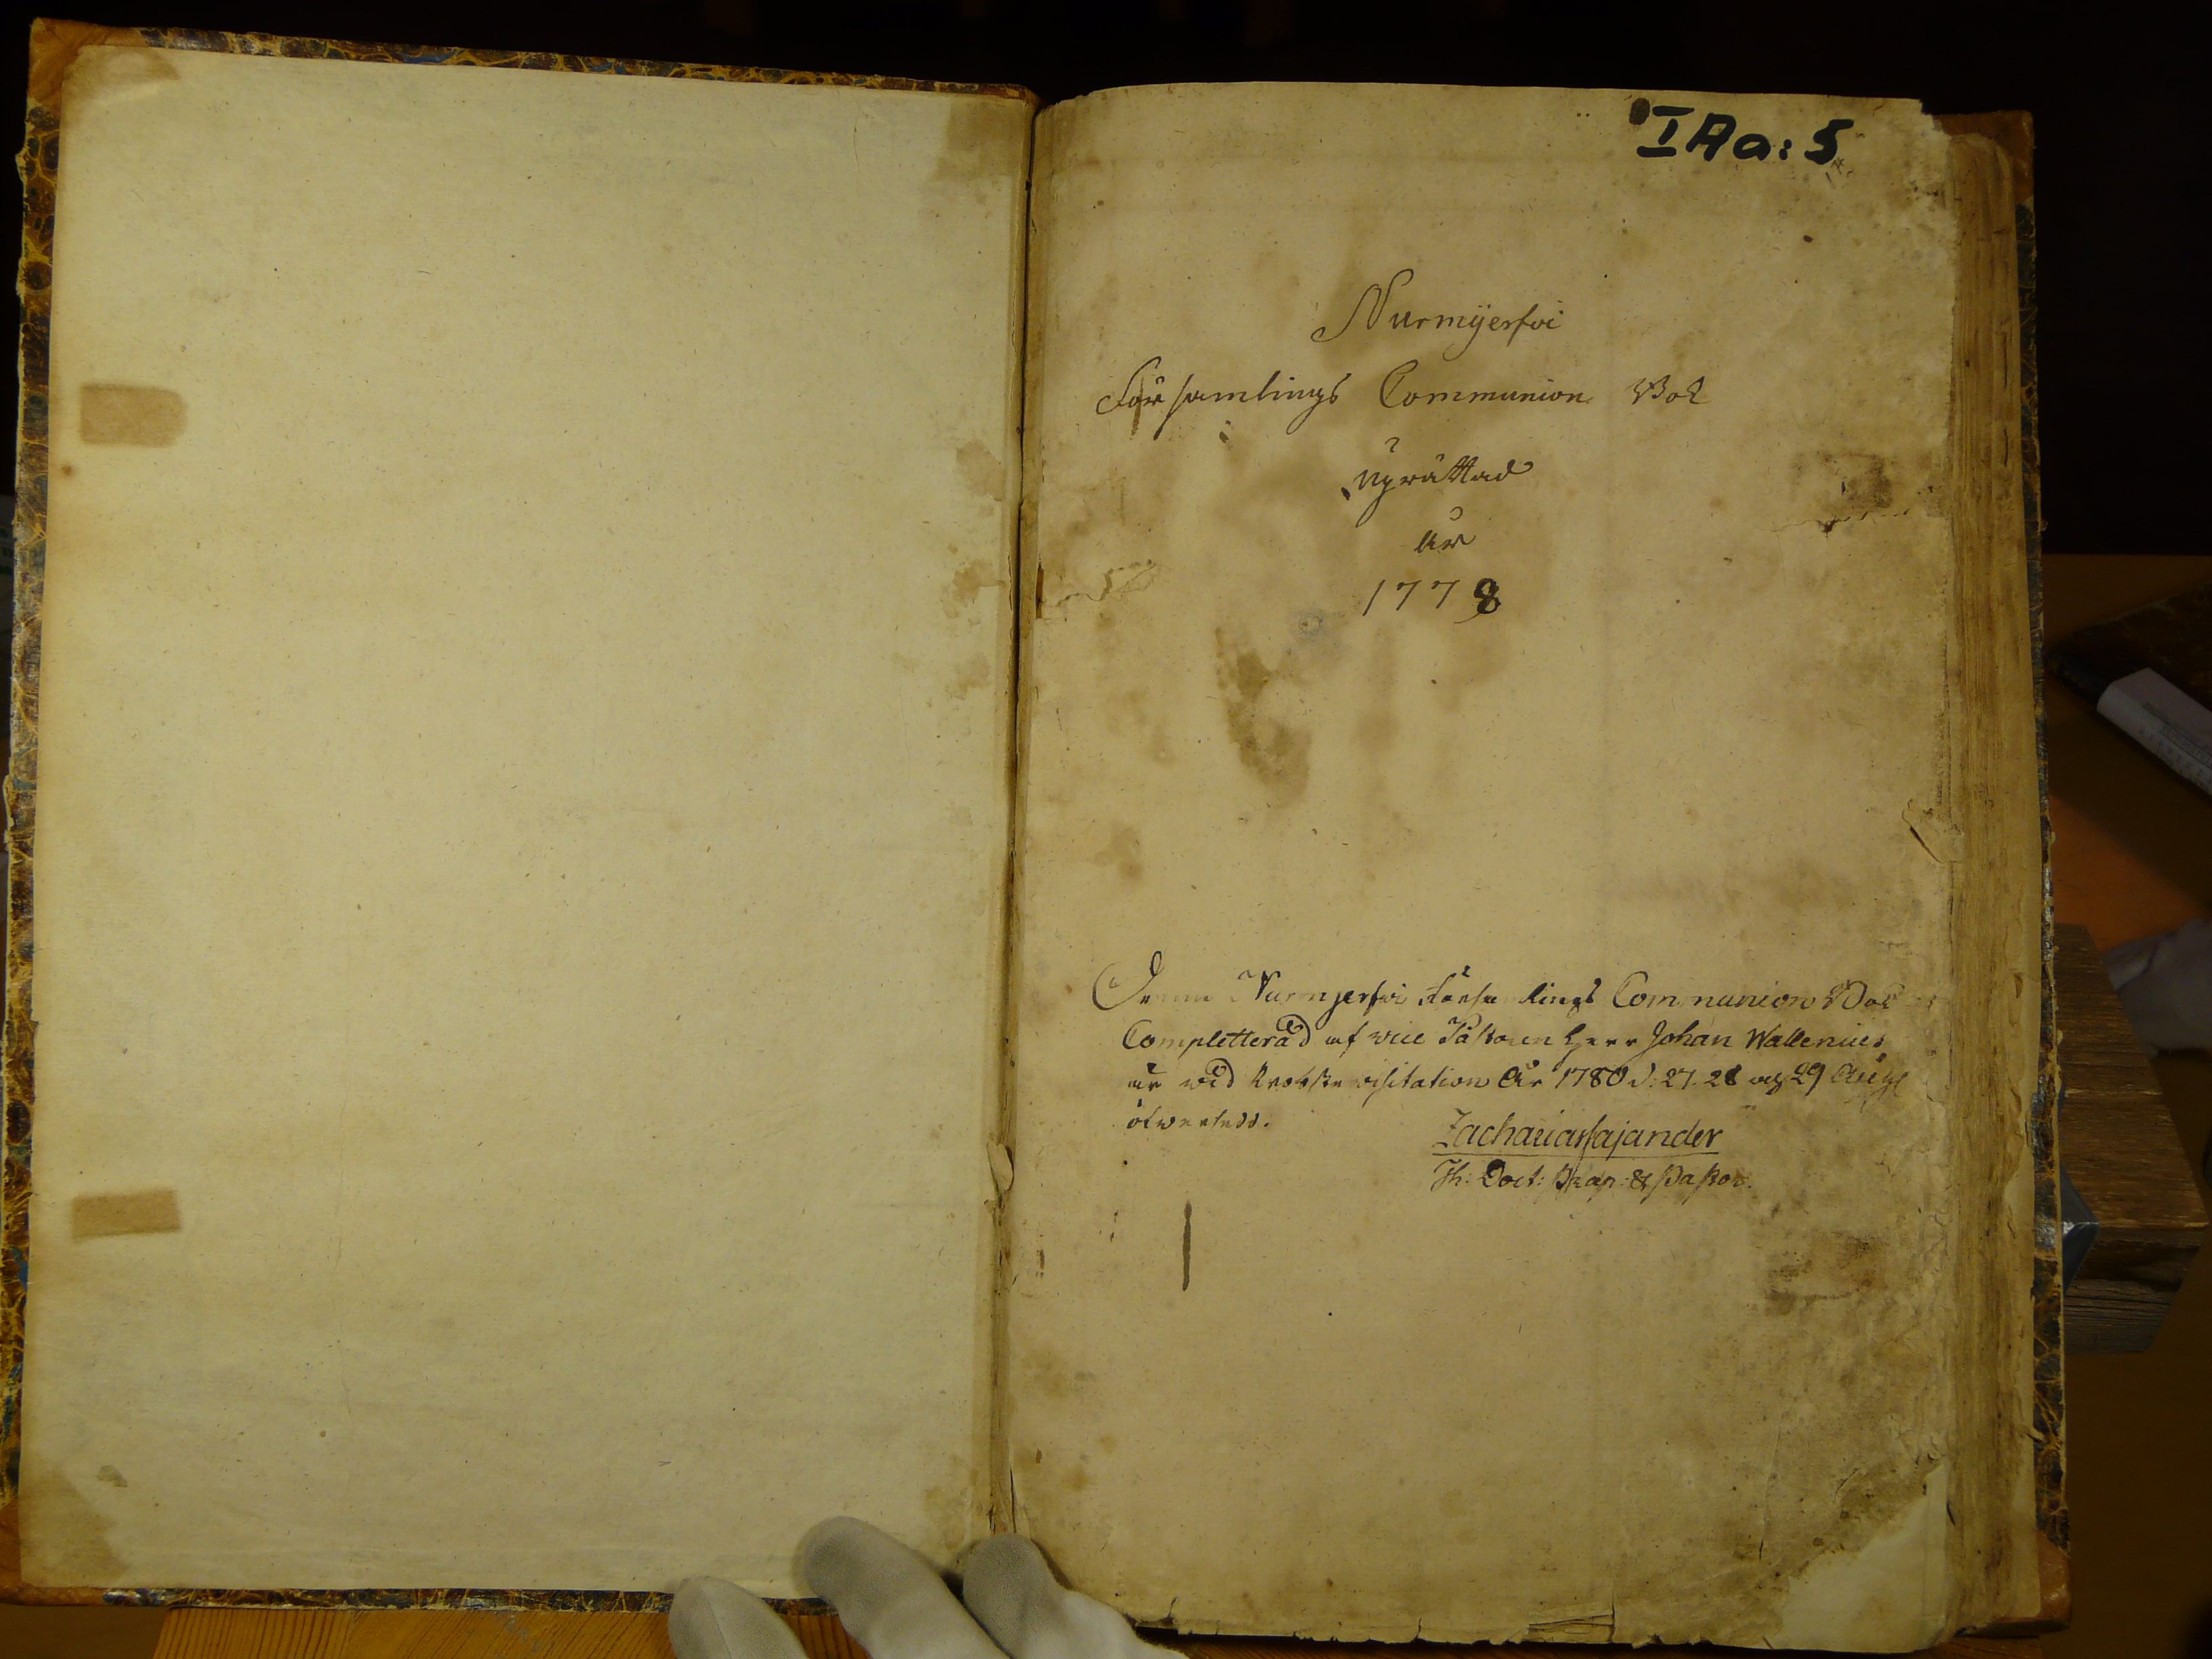 IAa:5
Nurmijerfvi
Församlings Communion Bok
Uprättad
år
1778
Denna Nurmjerfvi Församlings Communion Bok
Completterad af vice Pastoren Herr Johan Wallenius
är wid Probste visitation År 1780 d: 27. 28 och 29 Aug:
öfwersedd.
Zacharias Cajander
Th: Doct: Præp: & Pastor.